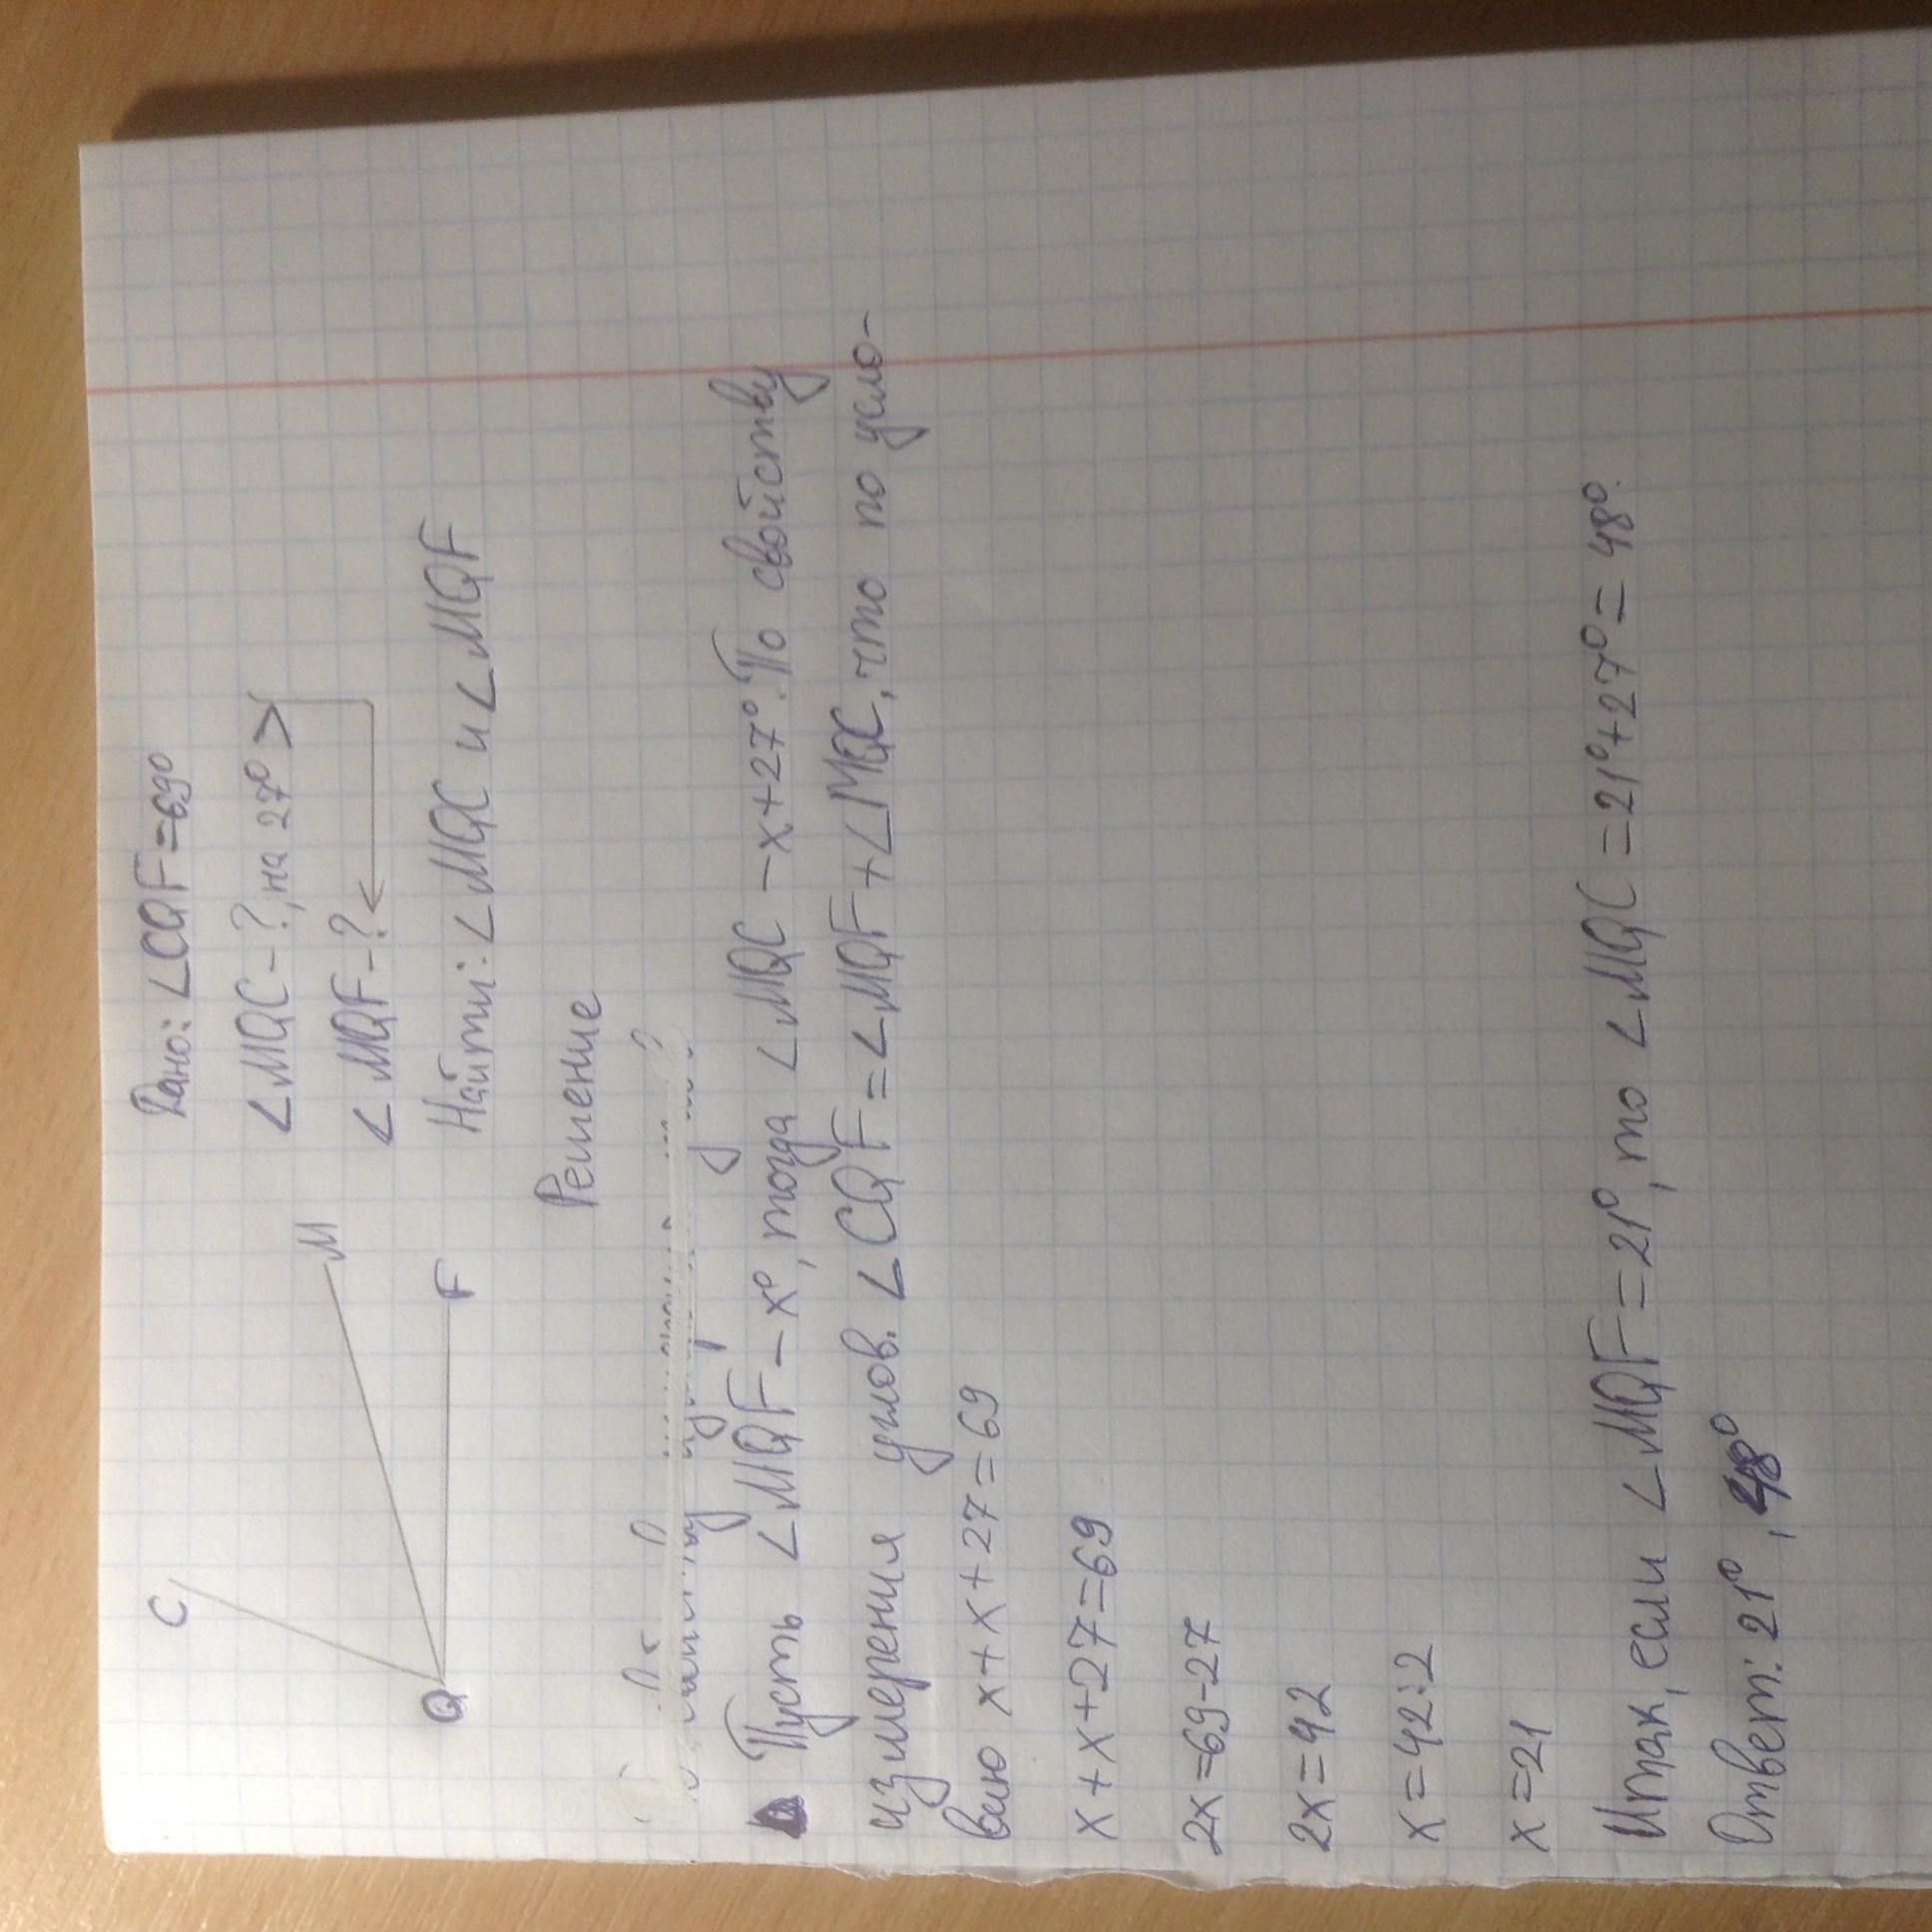 C
M
Q
F
Дано: ∠CQF=69°
∠MQC-?, на 27° >
∠MQF-?
Найти: ∠MQC и ∠MQF
Решение
Пусть ∠MQF-x°, тогда ∠MQC-x+27°. По свойству
измерения углов. ∠CQF=∠MQF+∠MQC, что по усло-
вию x+x+27=69
x+x+27=69
2x=69-27
2x=42
x=42:2
x=21
Итак, если ∠MQF=21°, то ∠MQC=21°+27°=48°.
Ответ: 21°, 48°